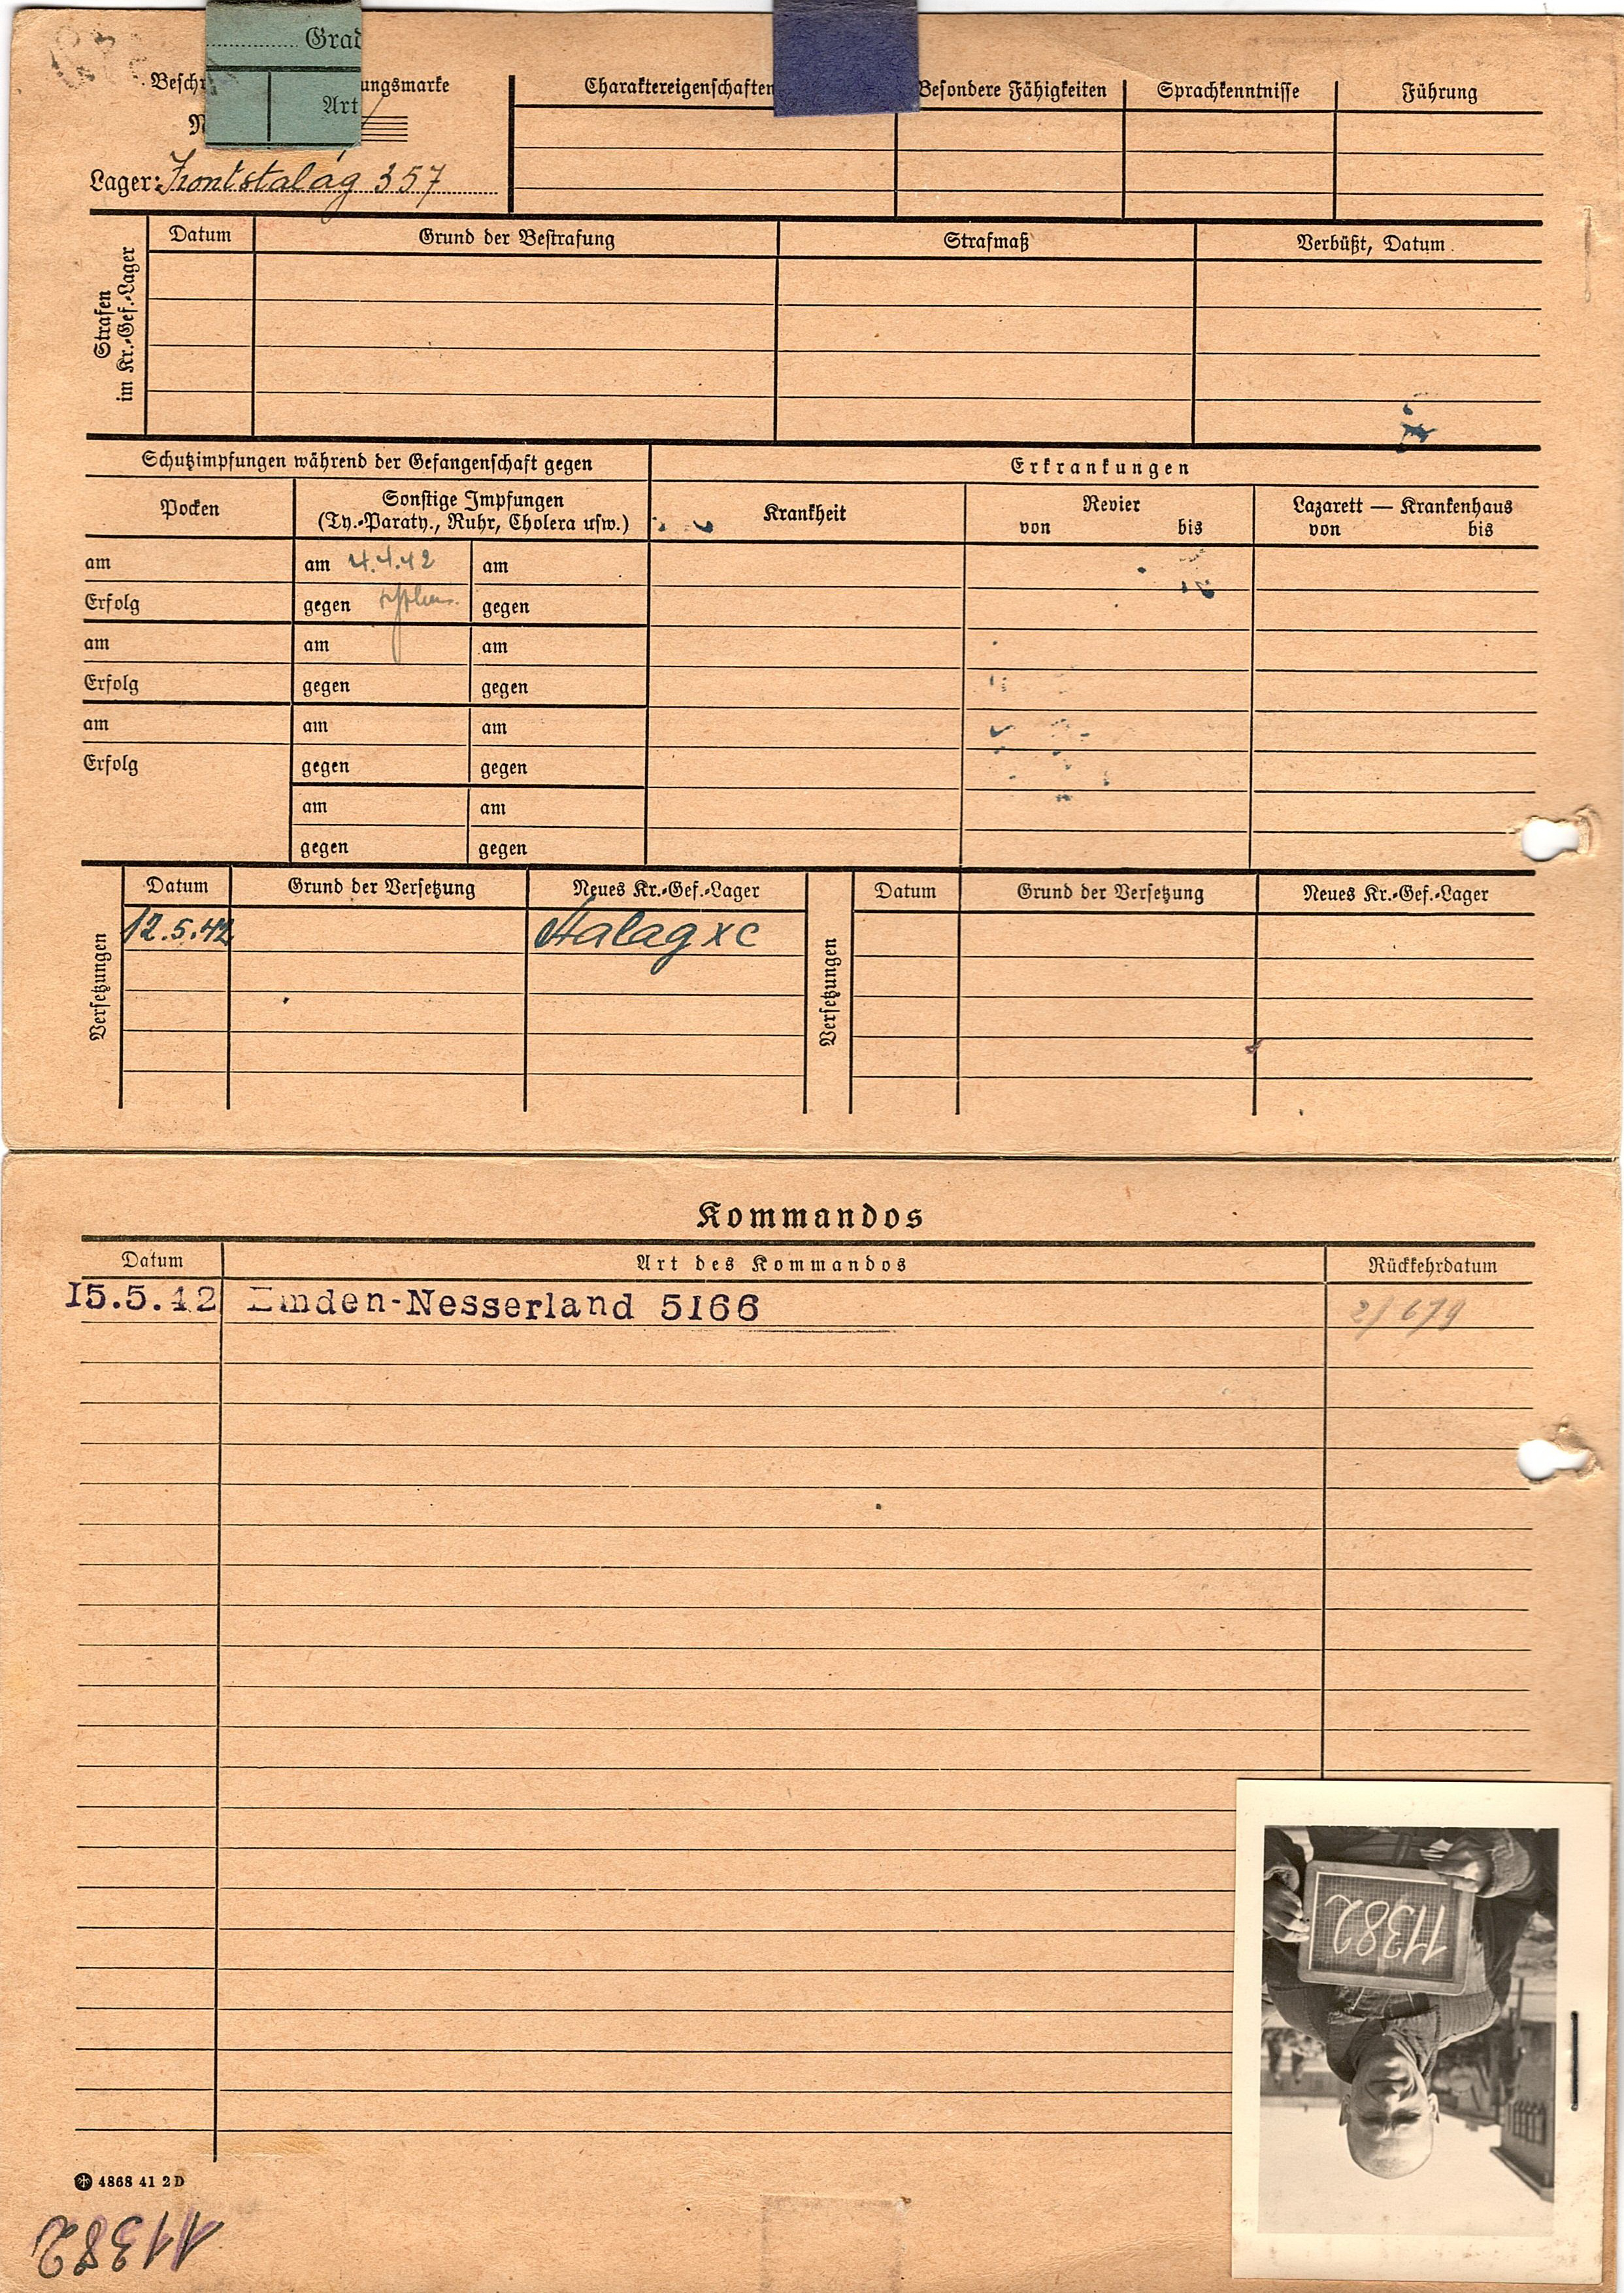 Grad
Art
Lager: Frontstalag 357
Charaktereigenschaften
Besondere Fähigkeiten
Sprachkenntnisse
Führung
Strafen
im Kr.-Gef.-Lager
Datum
Grund der Bestrafung
Strafmaß
Verbüßt, Datum
Schutzimpfungen während der Gefangenschaft gegen
Erkrankungen
Pocken
Sonstige Impfungen
(Ty.-Paraty., Ruhr, Cholera usw.)
Krankheit
Revier
von bis
Lazarett — Krankenhaus
von bis
am am 4.4.42 am
Erfolg gegen gegen
am am am
Erfolg gegen gegen
am am am
Erfolg gegen gegen
am am
gegen gegen
Versetzungen
Datum Grund der Versetzung Neues Kr.-Gef.-Lager
12.5.42 Stalag XC
Versetzungen
Datum Grund der Versetzung Neues Kr.-Gef.-Lager
Kommandos
Datum Art des Kommandos Rückkehrdatum
15.5.42 Emden-Nesserland 5166
11382
4868 41 2 D
11382